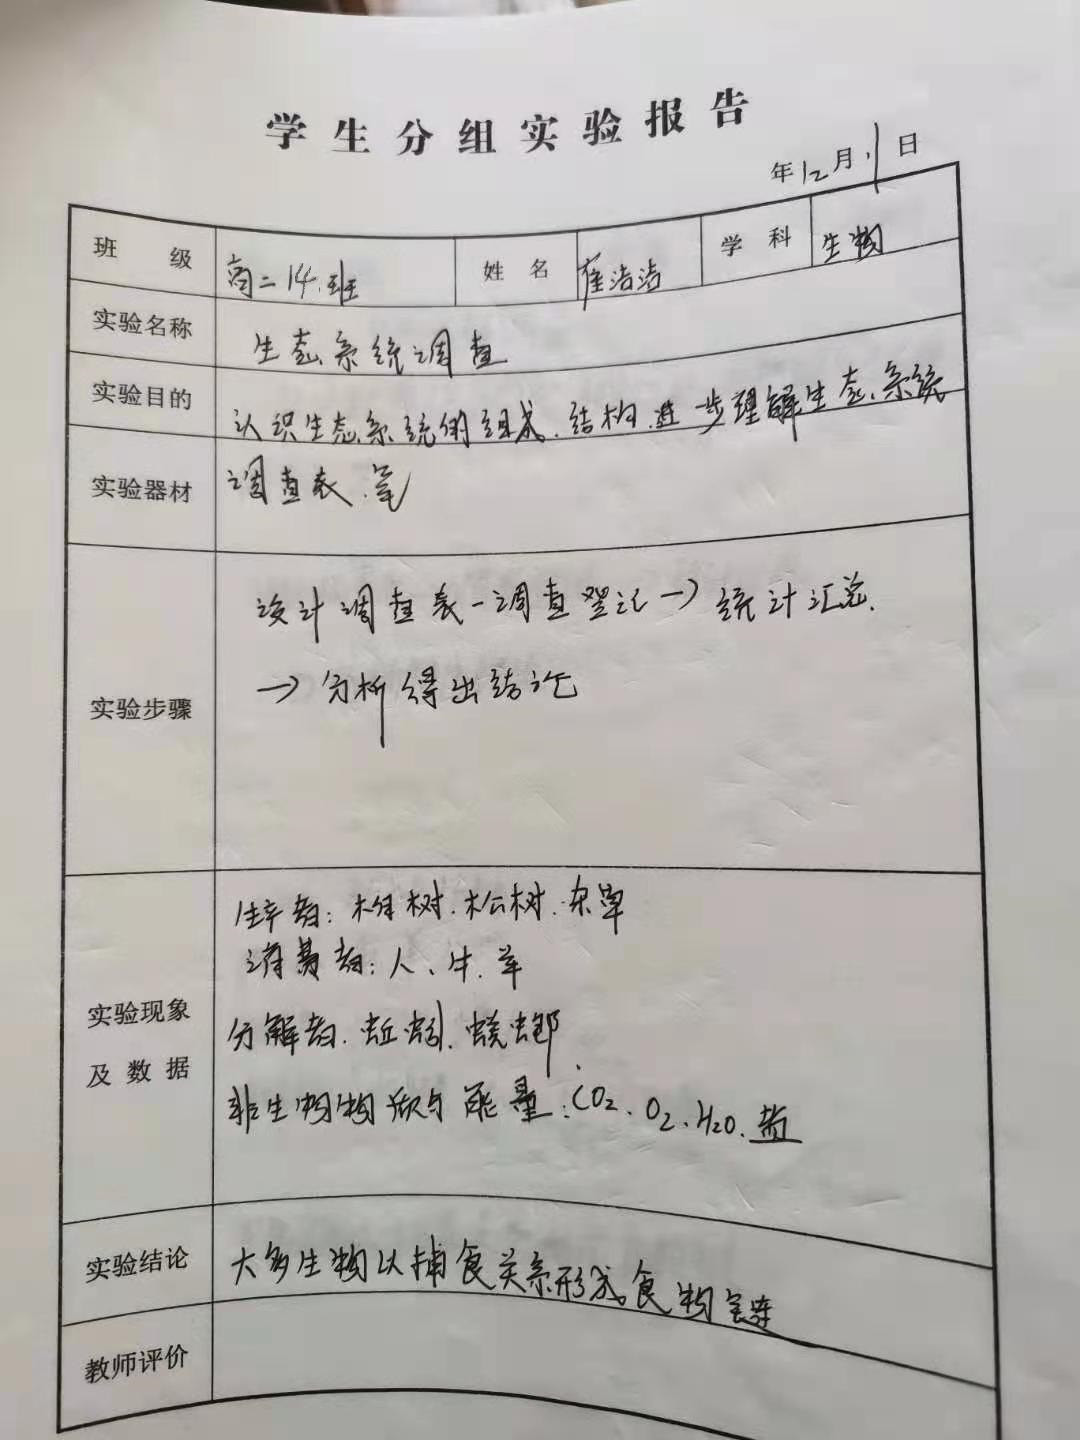 学生分组实验报告
年12月11日
班级 高二14.班 姓名 崔洁洁 学科 生物
实验名称 生态系统调查
实验目的 认识生态系统的组成.结构.进一步理解生态系统
实验器材 调查表.笔
实验步骤
设计调查表-调查登记→统计汇总.
→分析得出结论
实验现象
及数据
生产者:树.松树.杂草
消费者:人、牛.羊
分解者.蚯蚓.蜣螂.
非生物物质与能量:CO2、O2、H2O.盐
实验结论 大多生物以捕食关系形成食物链
教师评价